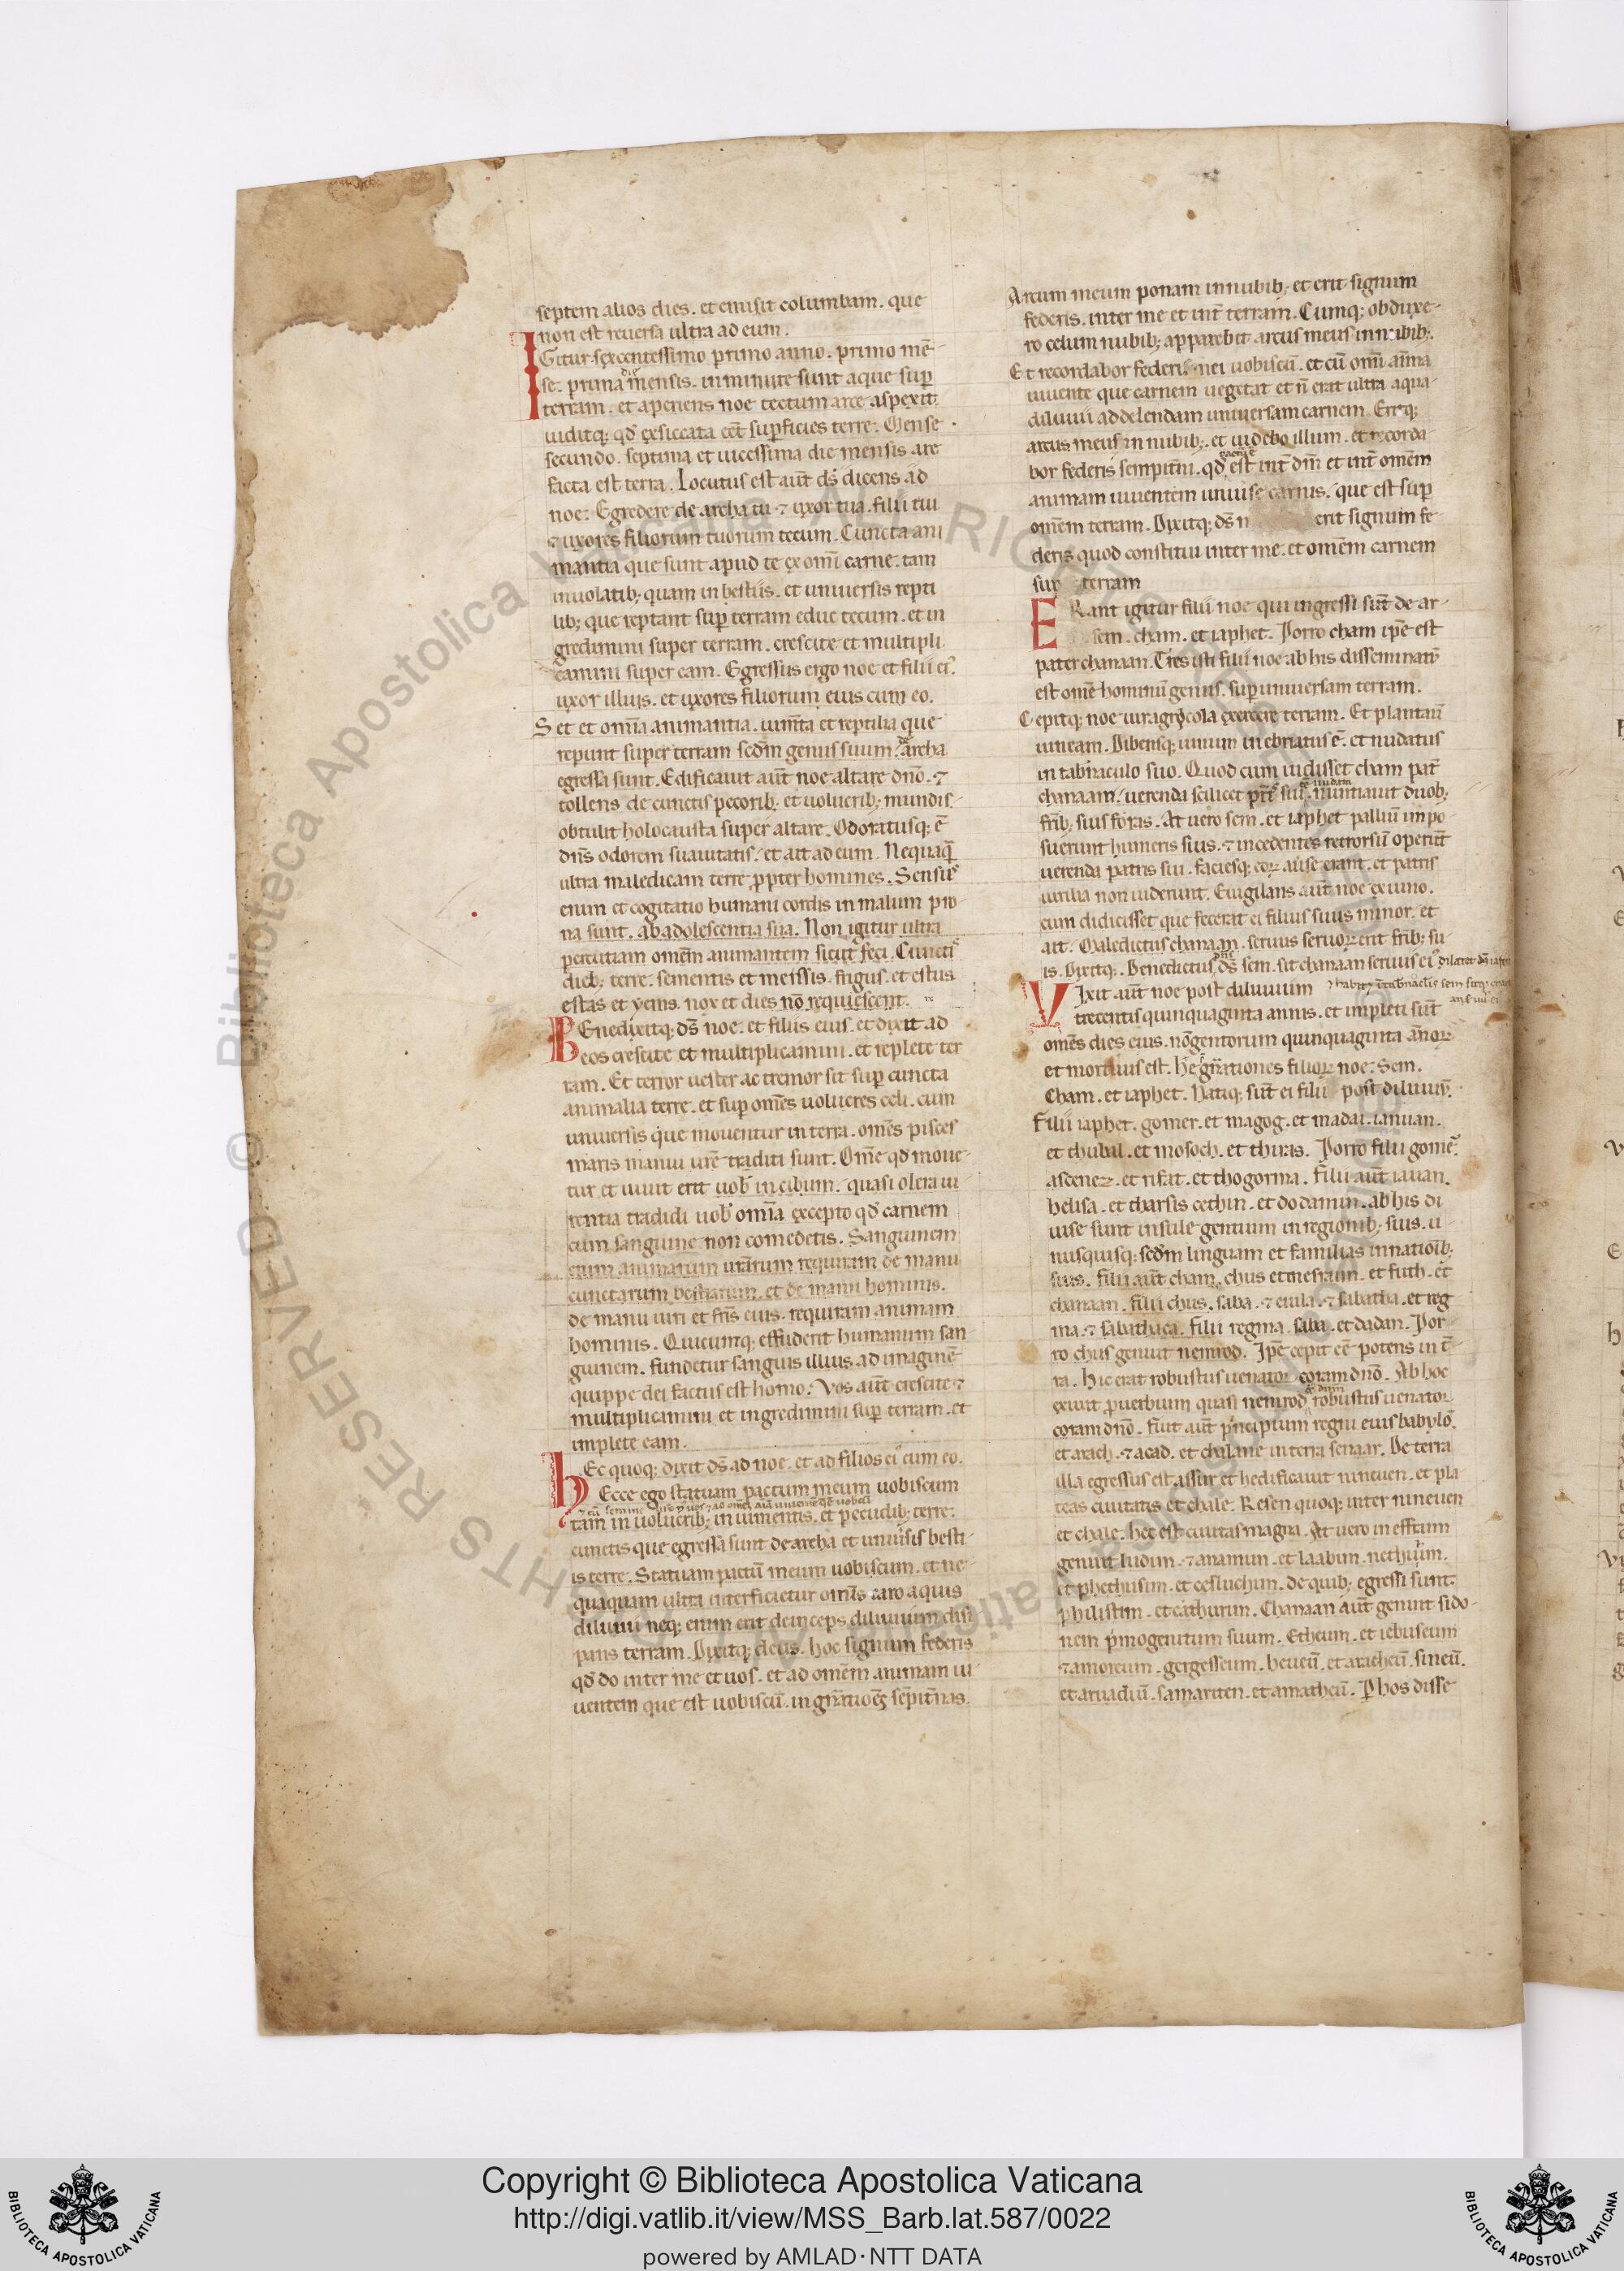 septem alios dies. et emisit columbam. que
non est reuersa ultra ad eum.
IGitur sexcentessimo primo anno. primo mē-
se. prima die mensis. inminute sunt aque sup̄
terram. et aperiens noe tectum arce aspexit.
uiditq; qđ exsiccata eēt sup̄ficies terre. Mense
secundo. septima et uicessima die mensis are
facta est terra. Locutus est aūt ds̄ dicens ad
noe. Egredere de archa tu ⁊ uxor tua. filii tui
⁊ uxores filiorum tuorum tecum. Cuncta ani
mantia que sunt apud te ex omī carne. tam
in uolatib; quam in bestiis. et uniuersis repti
lib; que reptant sup̄ terram educ tecum. et in
gredimini super terram. crescite et multipli
camini super eam. Egressus ergo noe et filii ei᾽.
uxor illius. et uxores filiorum eius cum eo.
Set et omīa animantia. iumīta et reptilia que
repunt super terram scđm genus suum. de archa
egressa sunt. Edificauit aūt noe altare dnō. ⁊
tollens de cunctis pecorib; et uolucrib; mundis.
obtulit holocausta super altare. Odoratusq; ē
dn̄s odorem suauitatis. et ait ad eum. Nequaq̄
ultra maledicam terre ꝓpter homines. Sensus
enim et cogitatio humani cordis in malum pro
na sunt. ab adolescentia sua. Non igitur ultra
percutiam omēm animantem sicut feci. Cuncti᾽
dieb; terre. sementis et messis. frigus. et estus
estas et yems. nox et dies nō requiescent.
BEnedixitq; ds̄ noe. et filiis eius. et dixit ad
eos crescite et multiplicamini. et replete ter
ram. Et terror uester ac tremor sit sup̄ cuncta
animalia terre. et sup̄ omēs uolucres celi. cum
uniuersis que mouentur in terra. omēs pisces
maris manui urē traditi sunt. Omē qđ moue-
tur et uiuit erit uob᾽ in cibum. quasi olera ui-
rentia tradidi uob᾽ omīa excepto qđ carnem
cum sanguine non comedetis. Sanguinem
enim animarum urārum requiram de manu
cunctarum bestiarum. et de manu hominis.
de manu uiri et fr̄is eius. requiram animam
hominis. Quicumq; effuderit humanum san
guinem. fundetur sanguis illius. ad imaginē
quippe dei factus est homo. Vos aūt crescite ⁊
multiplicamini et ingredimini sup̄ terram. et
implete eam.
HEc quoq; dixit ds̄ ad noe. et ad filios ei᾽ cum eo.
Ecce ego statuam pactum meum uobiscum
tam in uolucrib; in iumentis. et pecudib; terre.
cunctis que egressa sunt de archa et uniūsis besti-
is terre. Statuam pactū meum uobiscum. et ne-
quaquam ultra interficietur omīs caro aquis
diluuii neq; enim erit deinceps diluuium dissi
pans terram. Dixitq; deus. hoc signum federis
qđ do inter me et uos. et ad omēm animam ui-
uentem que est uobiscū. in gn̄ratioēs sēpit̄nas.
Arcum meum ponam in nubib; et erit signum
federis. inter me et int̄ terram. Cumq; obduxe-
ro celum nubib; apparebit arcus meus in nubib;.
Et recordabor federis mei uobiscū. et cū omī anīa
uiuente que carnem uegetat et n̄ erāt ultra aqua-
diluuii ad delendam uniuersam carnem. Eritq;
arcus meus in nubib;. et uidebo illum. et recorda-
bor federis sempit̄ni. qđ est int̄ dm̄ et int̄ omēm
animam uiuentem uniuerse carnis. que est sup̄
omēm terram. Dixitq; ds̄ n erit signum fe-
deris quod constitui inter me. et omēm carnem
sup terram
ERant igitur filii noe qui ingressi sūt de ar-
sem. cham. et iaphet. Porro cham ipē est
pater chanaan. Tres isti filii noe ab his disseminatū
est omē hominū genus. sup̄ uniuersam terram.
Cepitq; noe uir agricola exercere terram. Et plantauit
uineam. Bibensq; uinum inebriatus ē. et nudatus
in tabnaculo suo. Quod cum uidisset cham pat̄
chanaam. uerenda scilicet pr̄is sui eē nudam. nuntiauit duob;
fr̄ib; suis foras. At uero sem. et iaphet pallium impo-
suerunt humeris suis. ⁊ incedentes retrorsū operuēt
uerenda patris sui. faciesq; eoꝝ auīse erant. et patris
uirilia non uiderunt. Euigilans aūt noe ex uino.
cum didicisset que fecerat ei filius suus minor. et
ait. Maledictus chanaan. seruus seruoꝝ erit fr̄ib; su-
is. Dixitq;. Benedictus dn̄s ds̄ sem. sit chanaan seruus ei᾽ Dilatet ds̄ iafeth
VIxit aūt noe post diluuium
trecentis quinquaginta annis. et impleti sūt
omēs dies eius. nōgentorum quinquaginta annoꝝ
et mortuus est. He gn̄rationes filioꝝ noe. Sem.
Cham. et iaphet. Natiq; sūt ei filii post diluuiū.
Filii iaphet. gomer. et magog. et madai. ianuan.
et thubal. et mosoch. et thiras. Porro filii gomer.
ascenez. et rifat. et thogorma. filii aūt iauan.
helisa. et tharsis cethin. et dodamin. ab his di
uise sunt insule gentium in regionib; suis. u-
nusquisq; scđm linguam et familias in nationib;
suis. filii aūt cham. chus et mesraim. et futh. et
chanaan. filii chus. saba. ⁊ euila. ⁊ sabatha. et reg
ma. ⁊ sabathaca. filii regma. saba. et dadan. Por-
ro chus genuit nemrod. Ipē cepit eē potens in t̄-
ra. hic erat robustus uenator coram dnō. Ab hoc
exiuit ꝓuerbium quasi nemrod robustus uenator
coram dnō. fuit aūt p̄ncipium regni eius babylō.
et arach. ⁊ acad. et chalane in terra senaar. De terra
illa egressus est assur et hedificauit niniuen. et pla
teas ciuitatis et chale. Resen quoq; inter niniuen
et chale. hec est ciuitas magna. At uero meffraim
genuit ludim. ⁊ anamim. et laabim. nethuim.
et phethusim. et cesluchim. de quib; egressi sunt.
philistim. et cathurin. Chanaan aūt genuit sido-
nem p̄mogenitum suum. Etheum. et iebuseum
⁊ amoreum. gergesseum. heueū. et aracheū. sineū.
et aruadiū. samariten. et amatheū. P̄ hos disse-
Copyright © Biblioteca Apostolica Vaticana
http://digi.vatlib.it/view/MSS_Barb.lat.587/0022
powered by AMLAD·NTT DATA
BIBLIOTECA APOSTOLICA VATICANA
BIBLIOTECA APOSTOLICA VATICANA
© Biblioteca Apostolica Vaticana ALL RIGHTS RESERVED